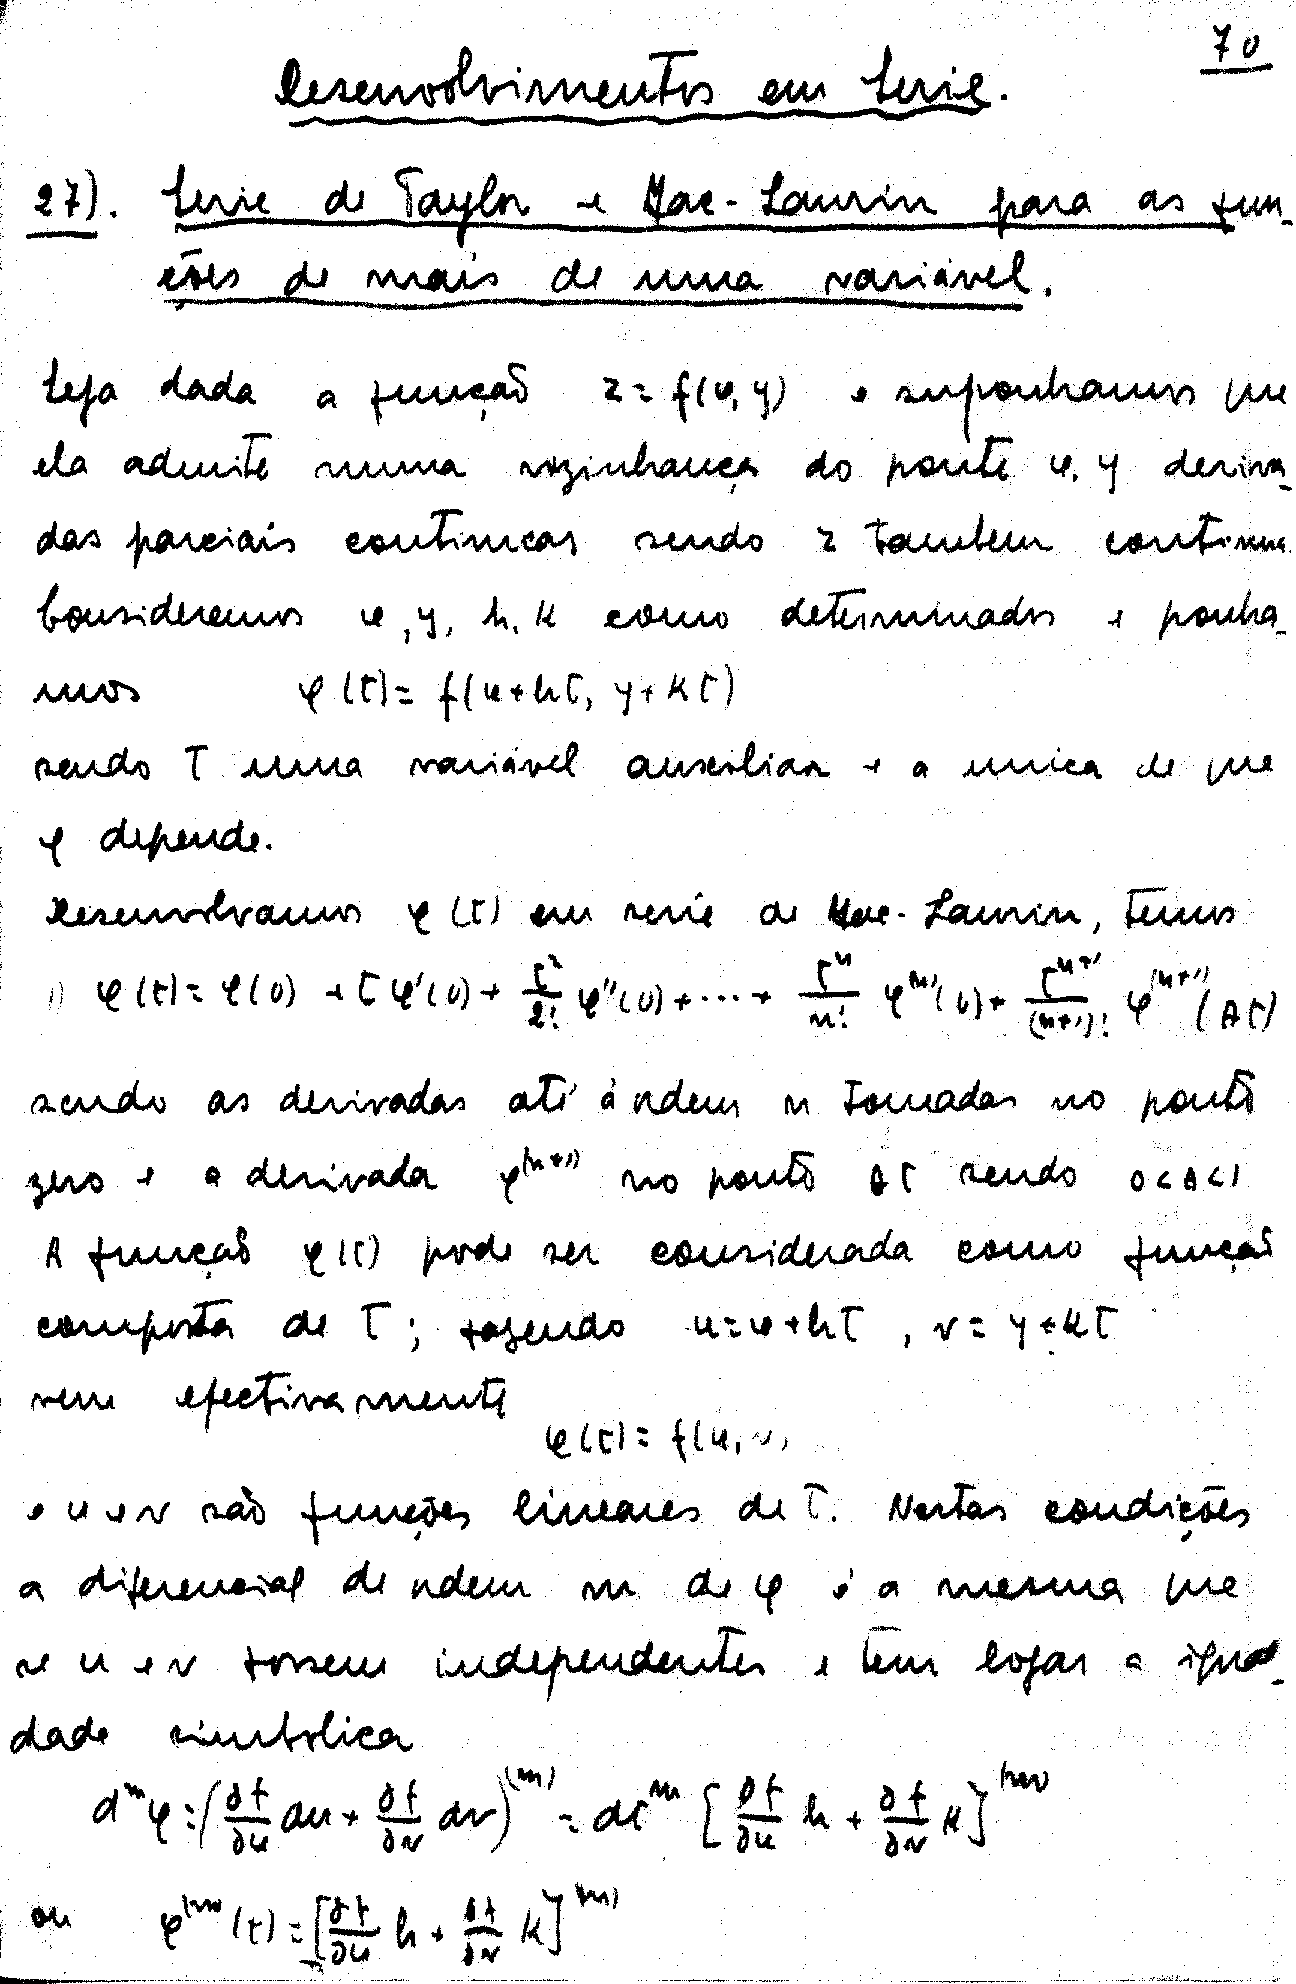 70
Desenvolvimentos em serie.
27). Serie de Taylor e Mac-Laurin para as fun-
ções de mais de uma variável.
Seja dada a função z = f(x, y) e suponhamos que
ela admite numa vizinhança do ponto x, y deriva-
das parciais continuas sendo z tambem continua
Consideremos x, y, h, k como determinados e ponha-
mos φ(t) = f(x+ht, y+kt)
sendo t uma variável auxiliar e a unica de que
φ depende.
Desenvolvamos φ(t) em serie de Mac-Laurin, temos
1) φ(t) = φ(0) + t φ'(0) + t²/2! φ''(0) + ... + tⁿ/n! φ⁽ⁿ⁾(0) + tⁿ⁺¹/(n+1)! φ⁽ⁿ⁺¹⁾(θt)
sendo as derivadas até á ordem n tomadas no ponto
zero e a derivada φ⁽ⁿ⁺¹⁾ no ponto θt sendo 0<θ<1
A função φ(t) pode ser considerada como função
composta de t; fazendo u=x+ht, v=y+kt
vem efectivamente
φ(t) = f(u, v)
e u e v são funções lineares de t. Nestas condições
a diferencial de ordem m de φ é a mesma que
se u e v fossem independentes e tem logar a igual-
dade simbolica
dᵐφ = (∂f/∂u du + ∂f/∂v dv)⁽ᵐ⁾ = dtᵐ [∂f/∂u h + ∂f/∂v k]⁽ᵐ⁾
ou φ⁽ᵐ⁾(t) = [∂f/∂u h + ∂f/∂v k]⁽ᵐ⁾